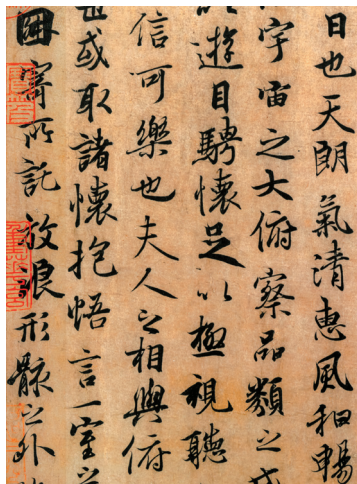 日也天朗氣清惠風和暢
宇宙之大俯察品類之盛
遊目騁懷足以極視聽
信可樂也夫人之相與俯
或取諸懷抱悟言一室之
因寄所託放浪形骸之外